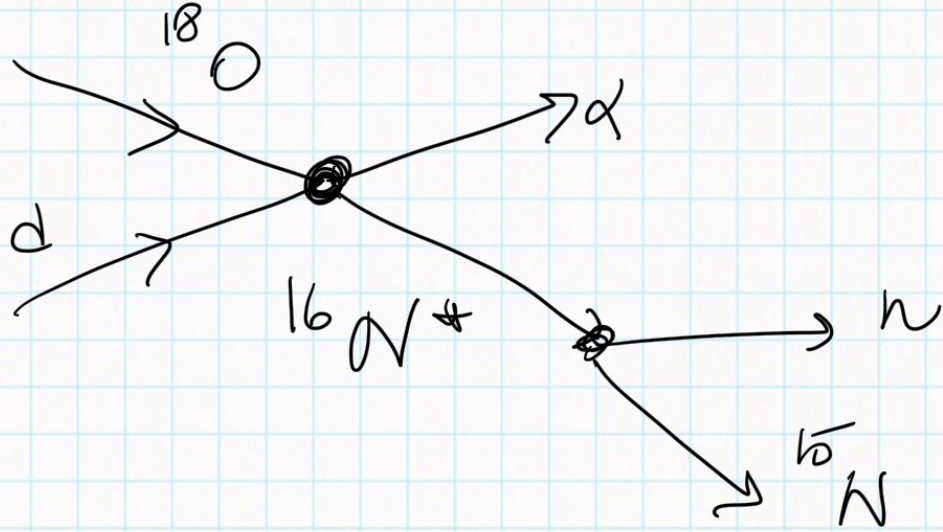 18
O
α
d
16
N*
n
15
N